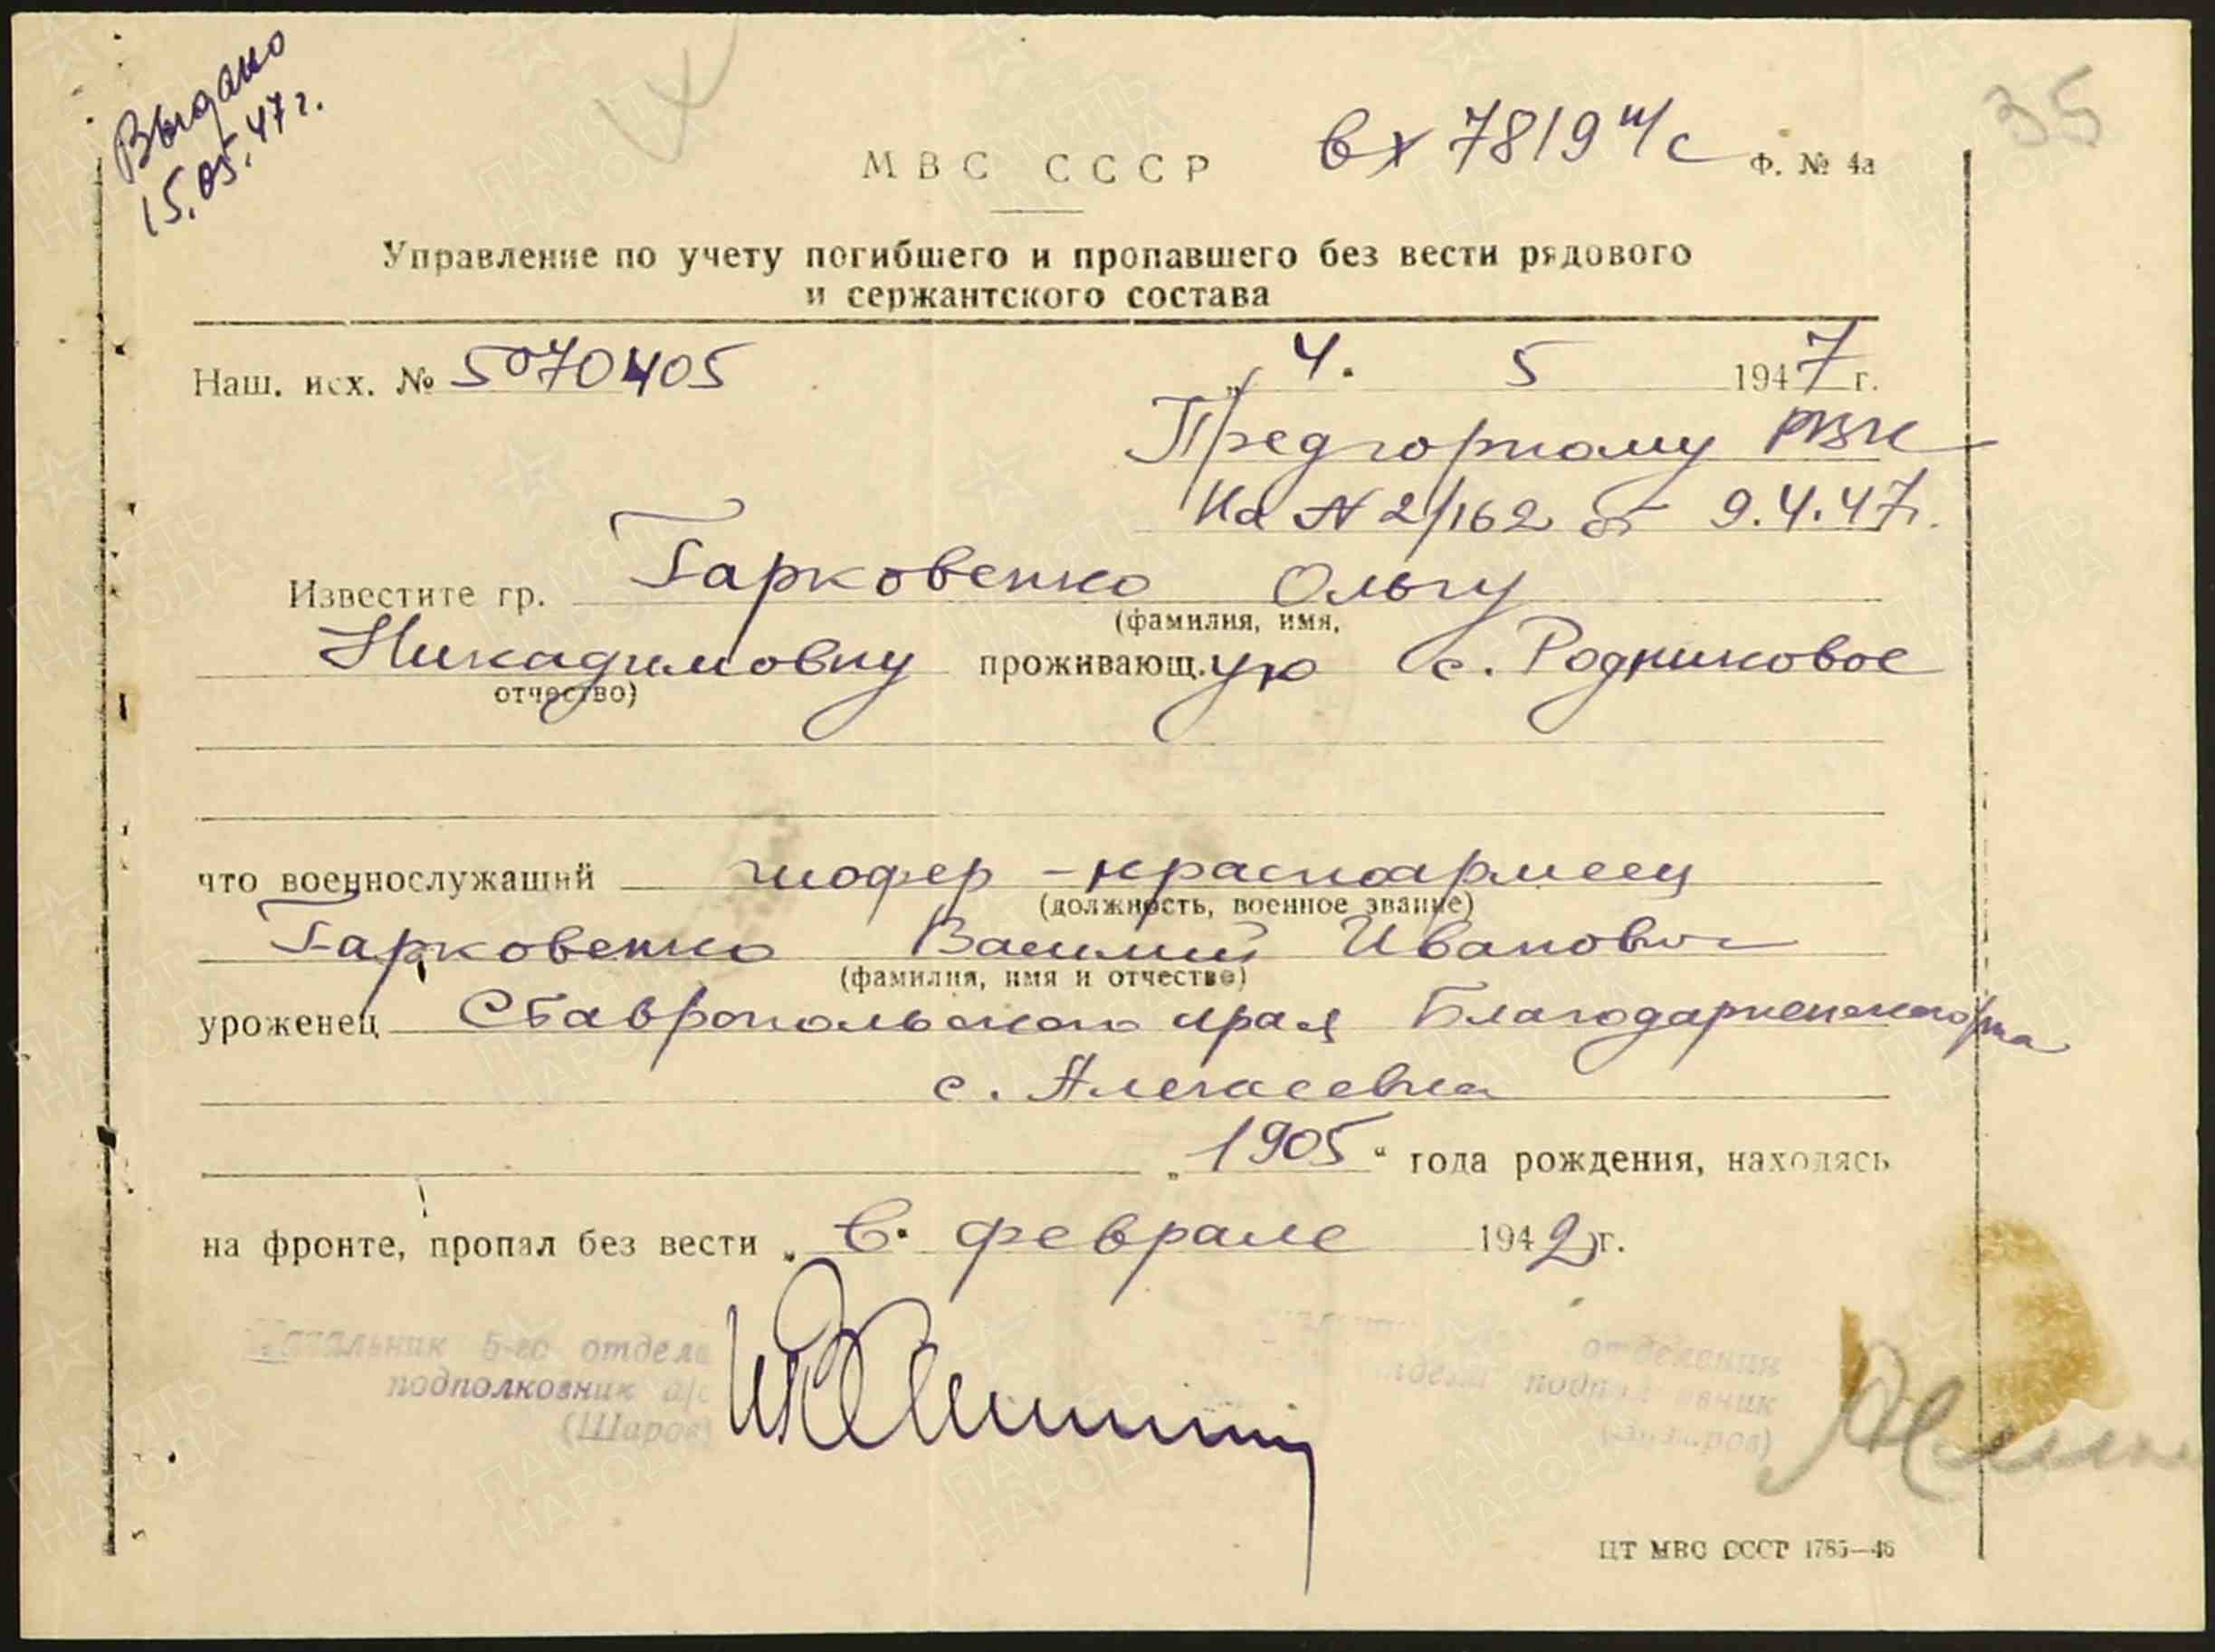 35
Выдано
15.05.47 г.
вх 7819 н/с
МВС СССР
Ф. № 4а
Управление по учету погибшего и пропавшего без вести рядового
и сержантского состава
Наш. исх. № 5070405
„ 4. 5 1947 г.
Предгорному РВК
На N 2/162 от 9.4.47г.
Известите гр. Гарковенко Ольгу
(фамилия, имя,
Никадимовну проживающ.ую с. Родниковое
отчество)
что военнослужащий шофер - красноармеец
(должность, военное звание)
Гарковенко Василий Иванович
(фамилия, имя и отчество)
уроженец Ставропольского края Благодарненского р-на
с. Алексеевка
„ 1905 " года рождения, находясь
на фронте, пропал без вести „ в. феврале 1942 г.
Начальник 5-го отдела
подполковник а/с
(Шаров)
отделения
отдела подполковник
ЦТ МВС СССР 1785—46
ПАМЯТЬ НАРОДА